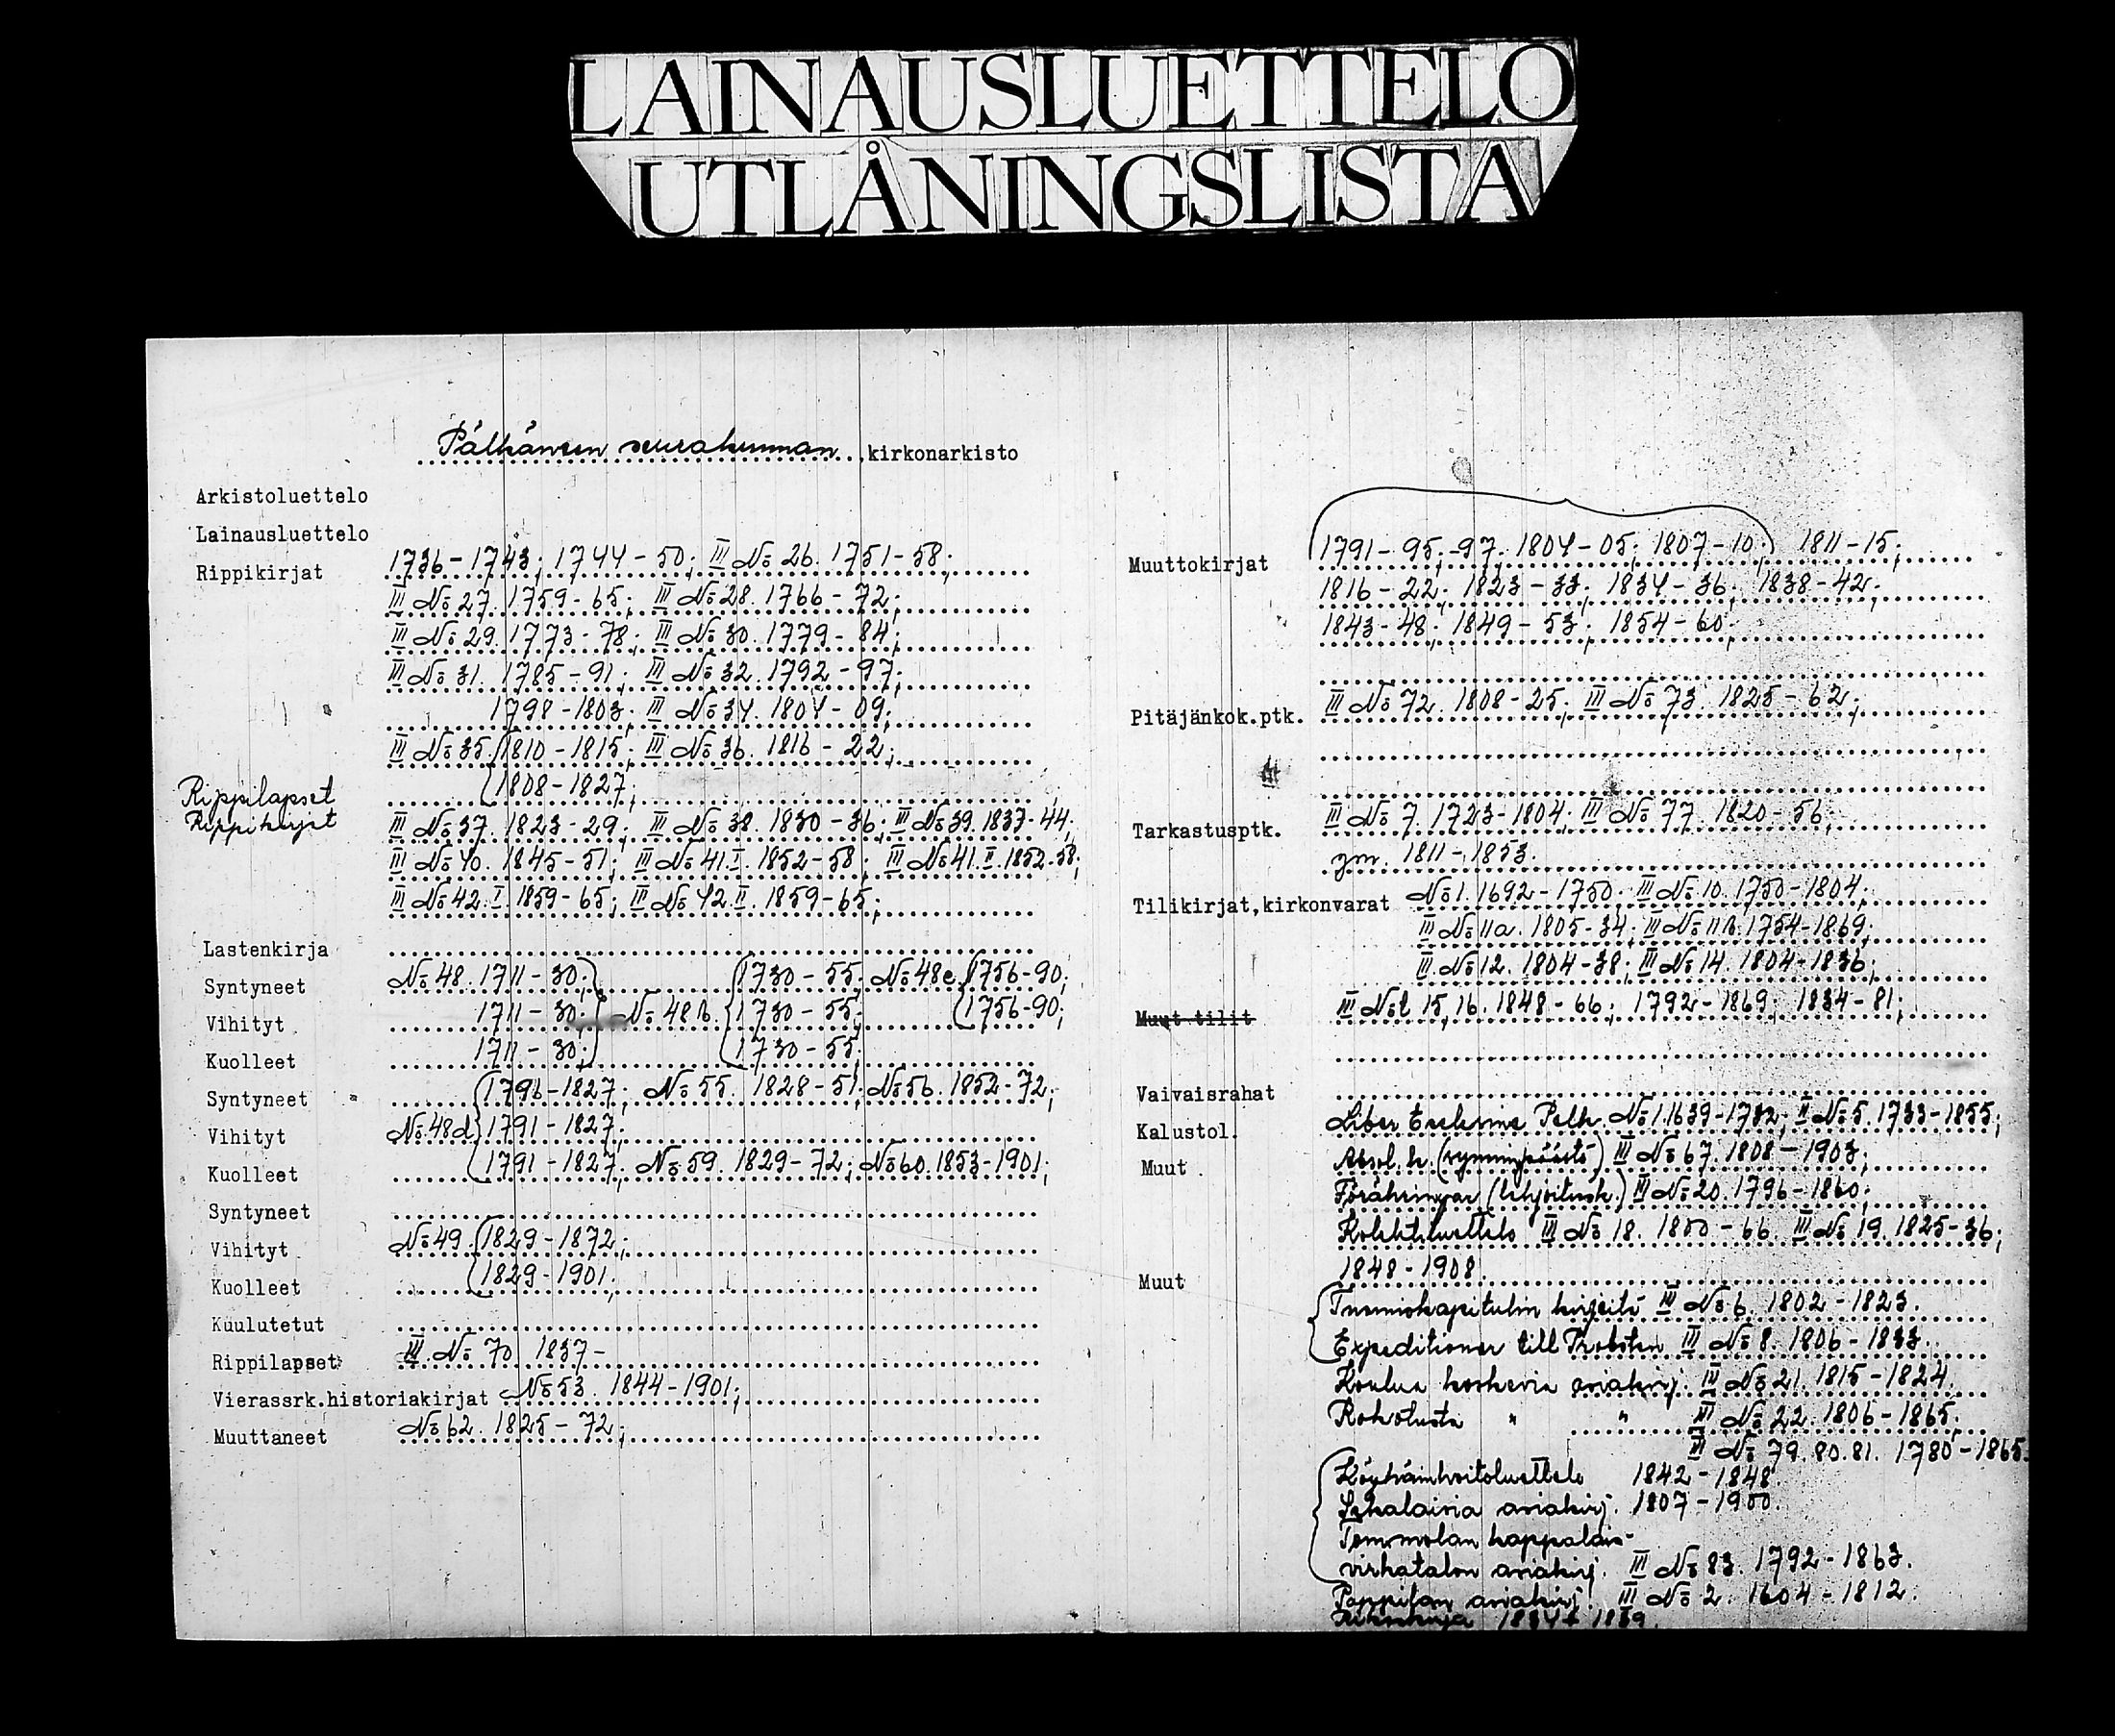 LAINAUSLUETTELO
UTLÅNINGSLISTA
Pälkäneen seurakunnan kirkonarkisto
Arkistoluettelo
Lainausluettelo
Rippikirjat 1736-1743; 1744-50; III No 26. 1751-58;
III No 27. 1759-65; III No 28. 1766-72;
III No 29. 1773-78; III No 30. 1779-84;
III No 31. 1785-91; III No 32. 1792-97;
1798-1803; III No 34. 1804-09;
III No 35. 1810-1815; III No 36. 1816-22;
Rippilapset 1808-1827;
Rippikirjat III No 37. 1823-29; III No 38. 1830-36; III No 39. 1837-44;
III No 40. 1845-51; III No 41.I. 1852-58; III No 41.II. 1852-58;
III No 42.I. 1859-65; III No 42.II. 1859-65;
Lastenkirja
Syntyneet No 48. 1711-30; 1730-55; No 48c 1756-90;
Vihityt 1711-30; No 48b. 1730-55; 1756-90;
Kuolleet 1711-30; 1730-55;
Syntyneet 1796-1827; No 55. 1828-51; No 56. 1852-72;
Vihityt No 48d 1791-1827;
Kuolleet 1791-1827; No 59. 1829-72; No 60. 1853-1901;
Syntyneet
Vihityt No 49. 1829-1872;
Kuolleet 1829-1901;
Kuulutetut
Rippilapset III No 70 1837-
Vierassrk.historiakirjat No 53. 1844-1901;
Muuttaneet No 62. 1825-72;
Muuttokirjat 1791-95; -97. 1804-05; 1807-10; 1811-15;
1816-22; 1823-33; 1834-36; 1838-42;
1843-48; 1849-53; 1854-60;
Pitäjänkok.ptk. III No 72. 1808-25; III No 73. 1825-62;
Tarkastusptk. III No 7. 1723-1804; III No 77. 1820-56;
ym. 1811-1853.
Tilikirjat,kirkonvarat No 1. 1692-1750; III No 10. 1750-1804;
III No 11a. 1805-34; III No 11b. 1754-1869;
III No 12. 1804-38; III No 14. 1804-1836;
Muut tilit III No 15,16. 1848-66; 1792-1869; 1834-81;
Vaivaisrahat
Kalustol. Liber Ecclesiae Pelk. No 1. 1639-1732; II No 5. 1733-1855;
Muut Absol.k. (synninpäästö) III No 67. 1808-1903;
Föräringar (lahjoitusk.) III No 20. 1796-1860;
Kolehtiluettelo III No 18. 1800-66. III No 19. 1825-36;
Muut 1848-1908.
Tuomiokapitulin kirjeitä III No 6. 1802-1823.
Expeditioner till Probsten III No 8. 1806-1833.
Koulua koskevia asiakirj. III No 21. 1815-1824.
Rokotusta " " III No 22. 1806-1865.
III No 79. 80. 81. 1780-1865.
Köyhäinhoitoluettelo 1842-1848
Sekalaisia asiakirj. 1807-1900.
Tommolan kappalais-
virkatalon asiakirj. III No 83. 1792-1863.
Pappilan asiakirj. III No 2. 1604-1812.